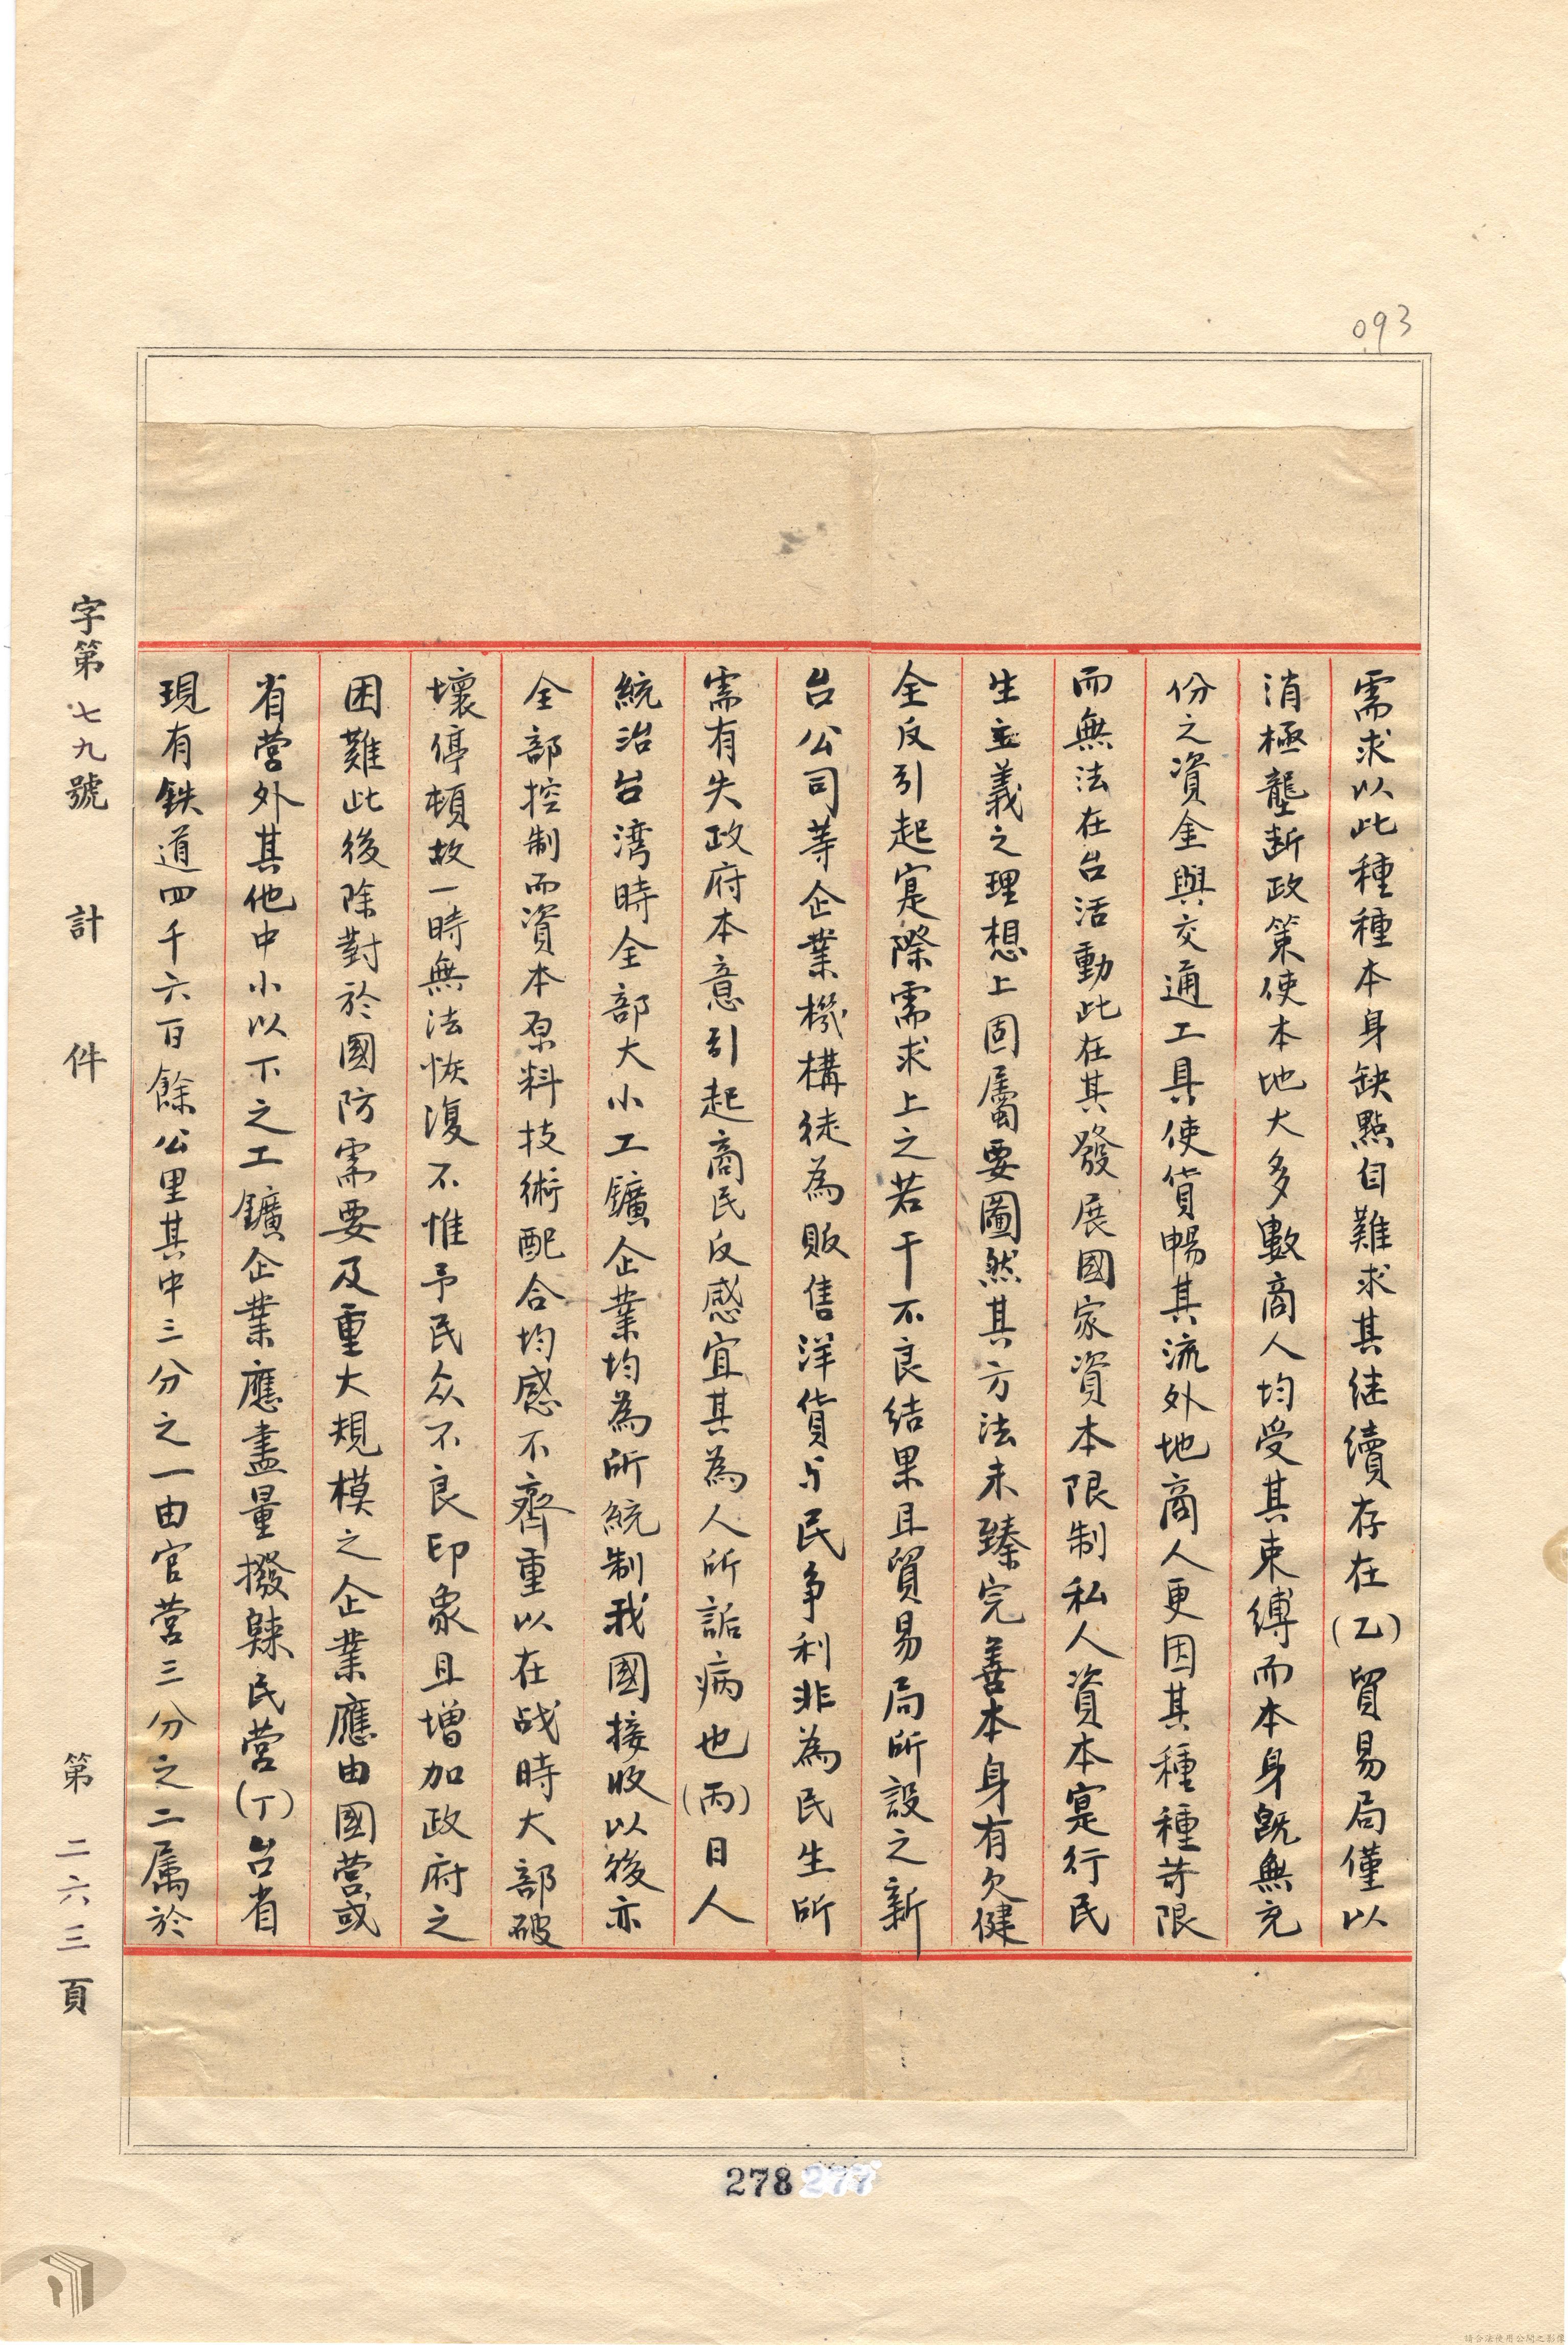 093
需求以此種種本身缺點自難求其继續存在(乙)貿易局僅以
消極壟断政策使本地大多數商人均受其束缚而本身既無充
份之資金與交通工具使貨暢其流外地商人更因其種種苛限
而無法在台活動此在其發展國家資本限制私人資本寔行民
生主義之理想上固屬要圖然其方法未臻完善本身有欠健
全反引起寔際需求上之若干不良结果且貿易局所設之新
台公司等企業機構徒為販售洋貨与民争利非為民生所
需有失政府本意引起商民反感宜其為人所詬病也(丙)日人
統治台湾時全部大小工鑛企業均為所統制我國接收以後亦
全部控制而資本原料技術配合均感不齊重以在战時大部破
壞停頓故一時無法恢復不惟予民众不良印象且增加政府之
困難此後除對於國防需要及重大規模之企業應由國营或
省营外其他中小以下之工鑛企業應盡量撥歸民营(丁)台省
現有铁道四千六百餘公里其中三分之一由官营三分之二属於
字第七九號 計 件 第二六三頁
278 277
請合法使用公開之影像